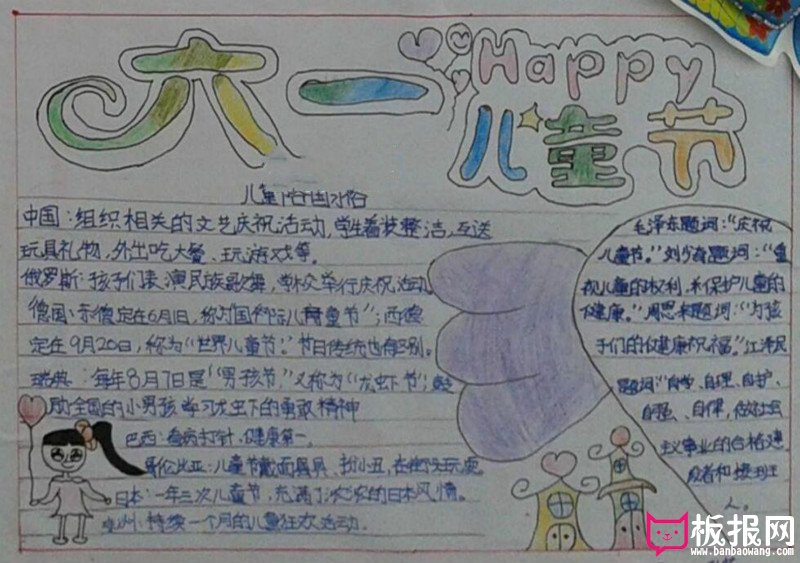 六一
Happy
儿童节
儿童节各国习俗
中国:组织相关的文艺庆祝活动,学生着装整洁,互送
玩具礼物,外出吃大餐、玩游戏等。
俄罗斯:孩子们表演民族歌舞,学校举行庆祝活动
德国:东德定在6月1日,称为“国际儿童节”;西德
定在9月20日,称为“世界儿童节”。节日传统也有区别。
瑞典:每年8月7日是“男孩节”,又称为“龙虾节”;鼓
励全国的小男孩学习龙虾的勇敢精神
巴西:看病打针,健康第一。
哥伦比亚:儿童节戴面具,扮小丑,在街头玩耍
日本:一年三次儿童节,充满了浓浓的日本风情。
洲:持续一个月的儿童狂欢活动
毛泽东题词:“庆祝
儿童节。”刘少奇题词:“重
视儿童的权利,和保护儿童的
健康。”周恩来题词:“为孩
子们的健康祝福。”江泽民
题词“自学、自理、自护、
自强、自律,做社会
主义事业的合格建
设者和接班
人
板报网
www.banbaowang.com